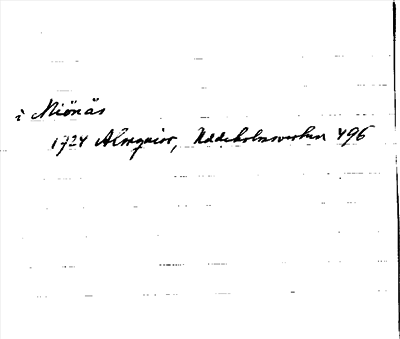 i Miönäs
1724 Almquist, Uddeholmsverken 496